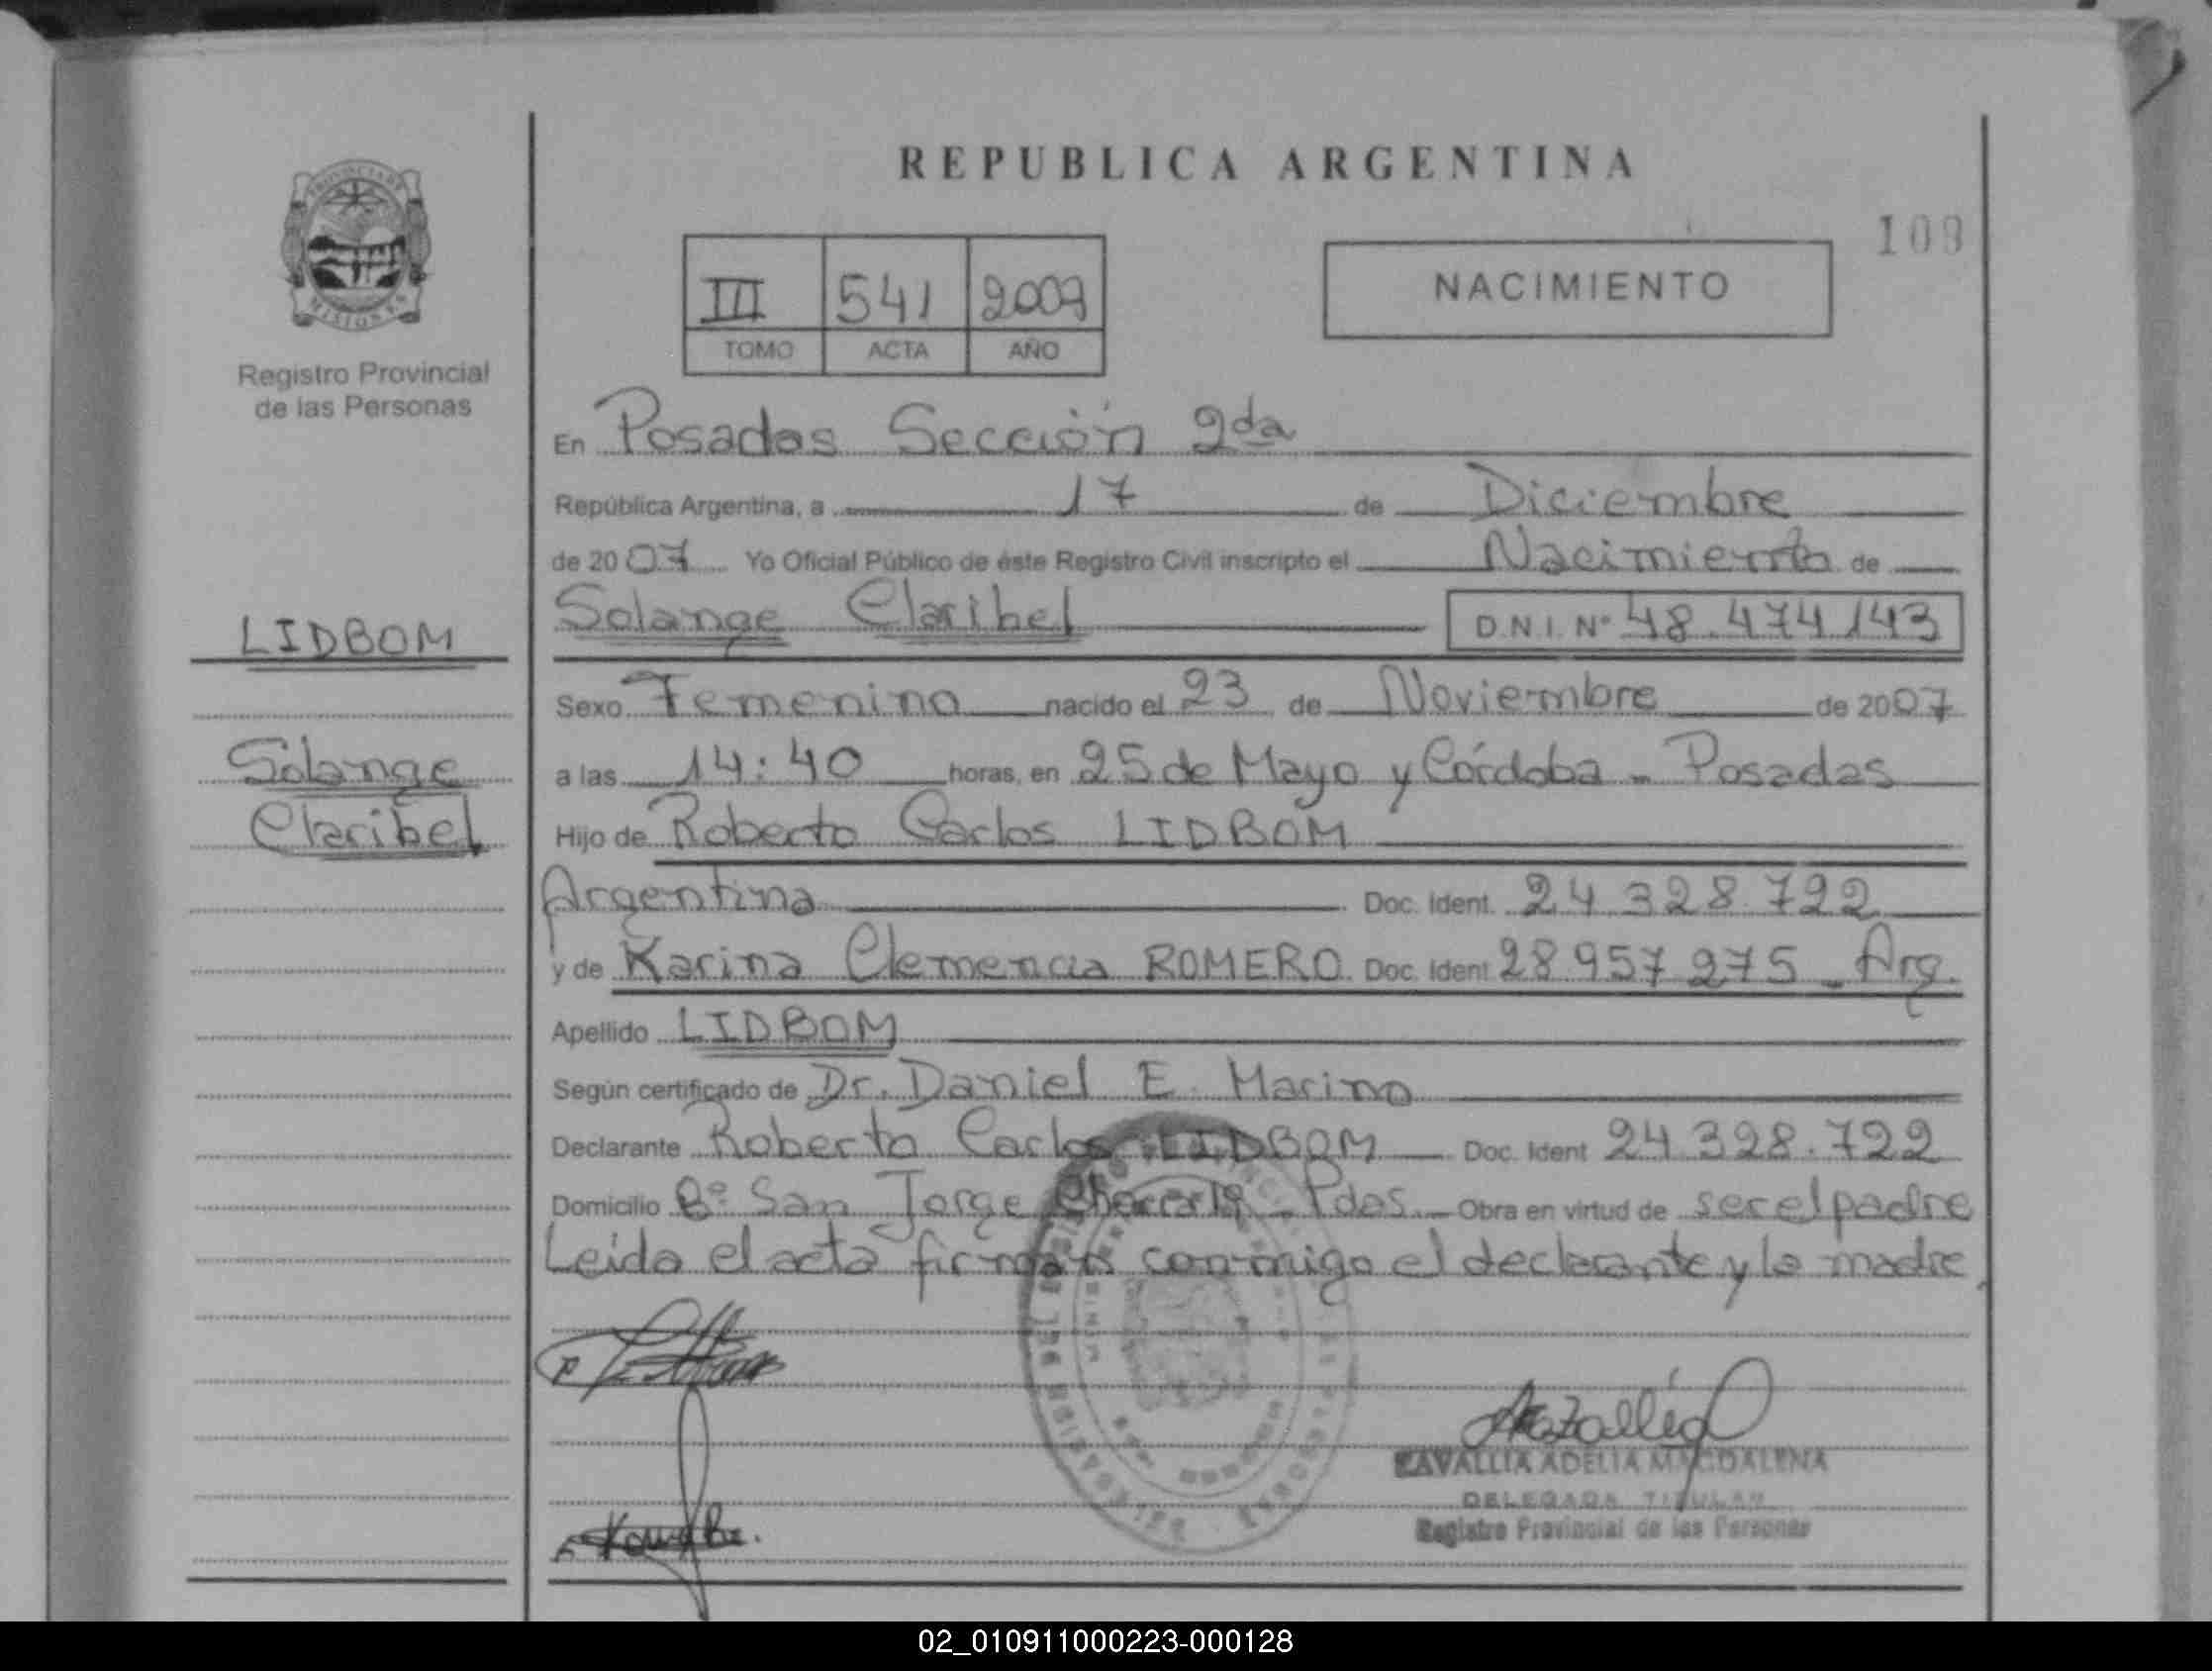 REPUBLICA ARGENTINA
109
PROVINCIA DE
MISIONES
Registro Provincial
de las Personas
III 541 2009
TOMO ACTA AÑO
NACIMIENTO
En Posadas Sección 2da
República Argentina, a 17 de Diciembre
de 2007 Yo Oficial Público de éste Registro Civil inscripto el Nacimiento de
Solange Claribel D.N.I. Nº 48.474143
LIDBOM
Solange
Claribel
Sexo Femenino nacido el 23 de Noviembre de 2007
a las 14:40 horas, en 25 de Mayo y Córdoba - Posadas
Hijo de Roberto Carlos LIDBOM
Argentina Doc. Ident. 24 328.722
y de Karina Clemencia ROMERO Doc. Ident 28 957 275 - Arg.
Apellido LIDBOM
Según certificado de Dr. Daniel E. Marino
Declarante Roberto Carlos LIDBOM Doc. Ident 24.328.722
Domicilio Bº San Jorge - Pdas. Obra en virtud de ser el padre
Leida el acta firman conmigo el declarante y la madre
ZAVALLIA ADELIA MAGDALENA
DELEGADA TITULAR
Registro Provincial de las Personas
02_010911000223-000128